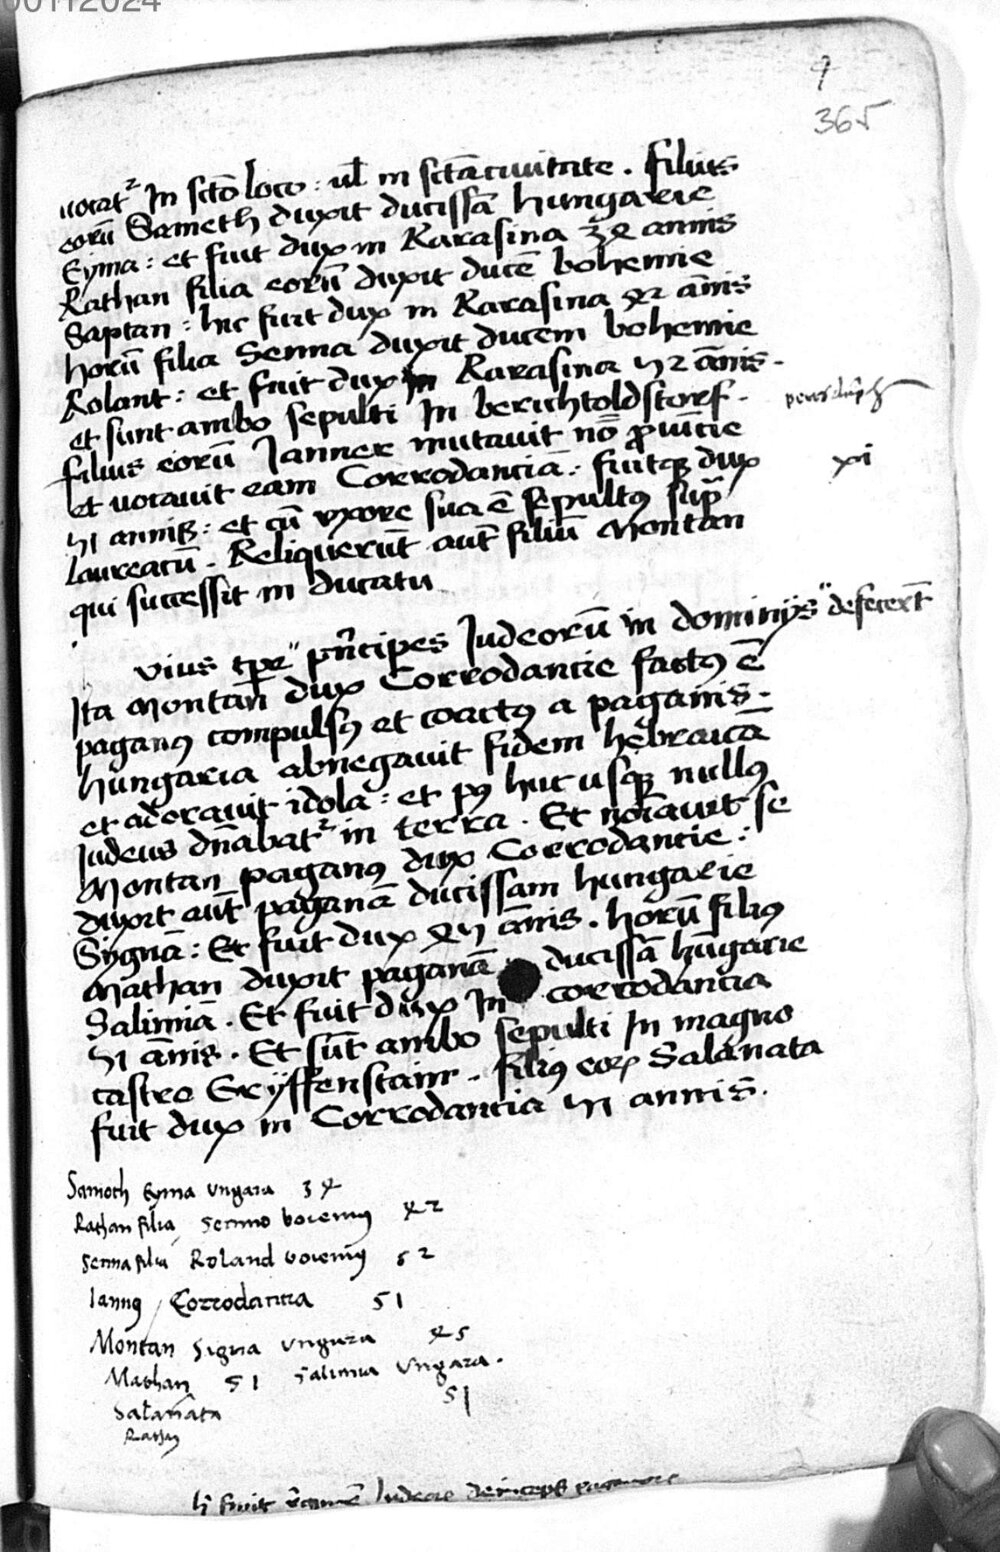 00112024
9
365
uocat᷑ In scto loco : ul̄ in scta ciuitate . filius
eorū Sameth duxit ducissā hungarie
Eyma : et fuit dux in Rarasina 34 annis
Rathan filia eorū duxit ducē bohemie
Saptan : hic fuit dux in Rarasina 42 ānis
horū filia Senna duxit ducem bohemie
Rolant : et fuit dux in Rarasina 52 ānis .
et sunt ambo sepulti In berichtoldstorf .
filius eorū Janner mutauit nō ꝓuīcie
et uocauit eam Corrodanciā : fuitqꝫ dux
xi
51 annis : et cū vxore sua ē sepultꝰ supͣ
laureacū . Reliquerūt aūt filiū Montan
qui successit in ducatu
uius tꝑe prīcipes Judeorū in dominijs defecerūt
Ita Montan dux Corrodancie factꝰ ē
paganꝰ compulsꝰ et coactꝰ a paganis .
hungaria abnegauit fidem hebraicā
et adorauit idola : et pꝰ huc usqꝫ nullꝰ
Judeus dn̄abat᷑ in terra . Et uocauit se
Montan paganꝰ dux Corrodancie :
duxit aūt paganā ducissam hungarie
Sygnā : Et fuit dux 45 ānis . horū filiꝰ
Mathan duxit paganā ducissā hūgarie
Salimiā . Et fuit dux In corrodancia
51 ānis . Et sūt ambo sepulti In magno
castro Gryffenstain . filiꝰ eoꝝ Salanata
fuit dux in Corrodancia 51 annis .
Samoth Eyma vngara 34
Rathan filia Senno boiemꝰ 42
Senna filia Roland boiemꝰ 52
Iannꝰ Corrodantia 51
Montan Signa vngara 45
Mathan 51 Salimia vngara .
51
Salanata
Rathan
hi fuit Iudeis deinceps